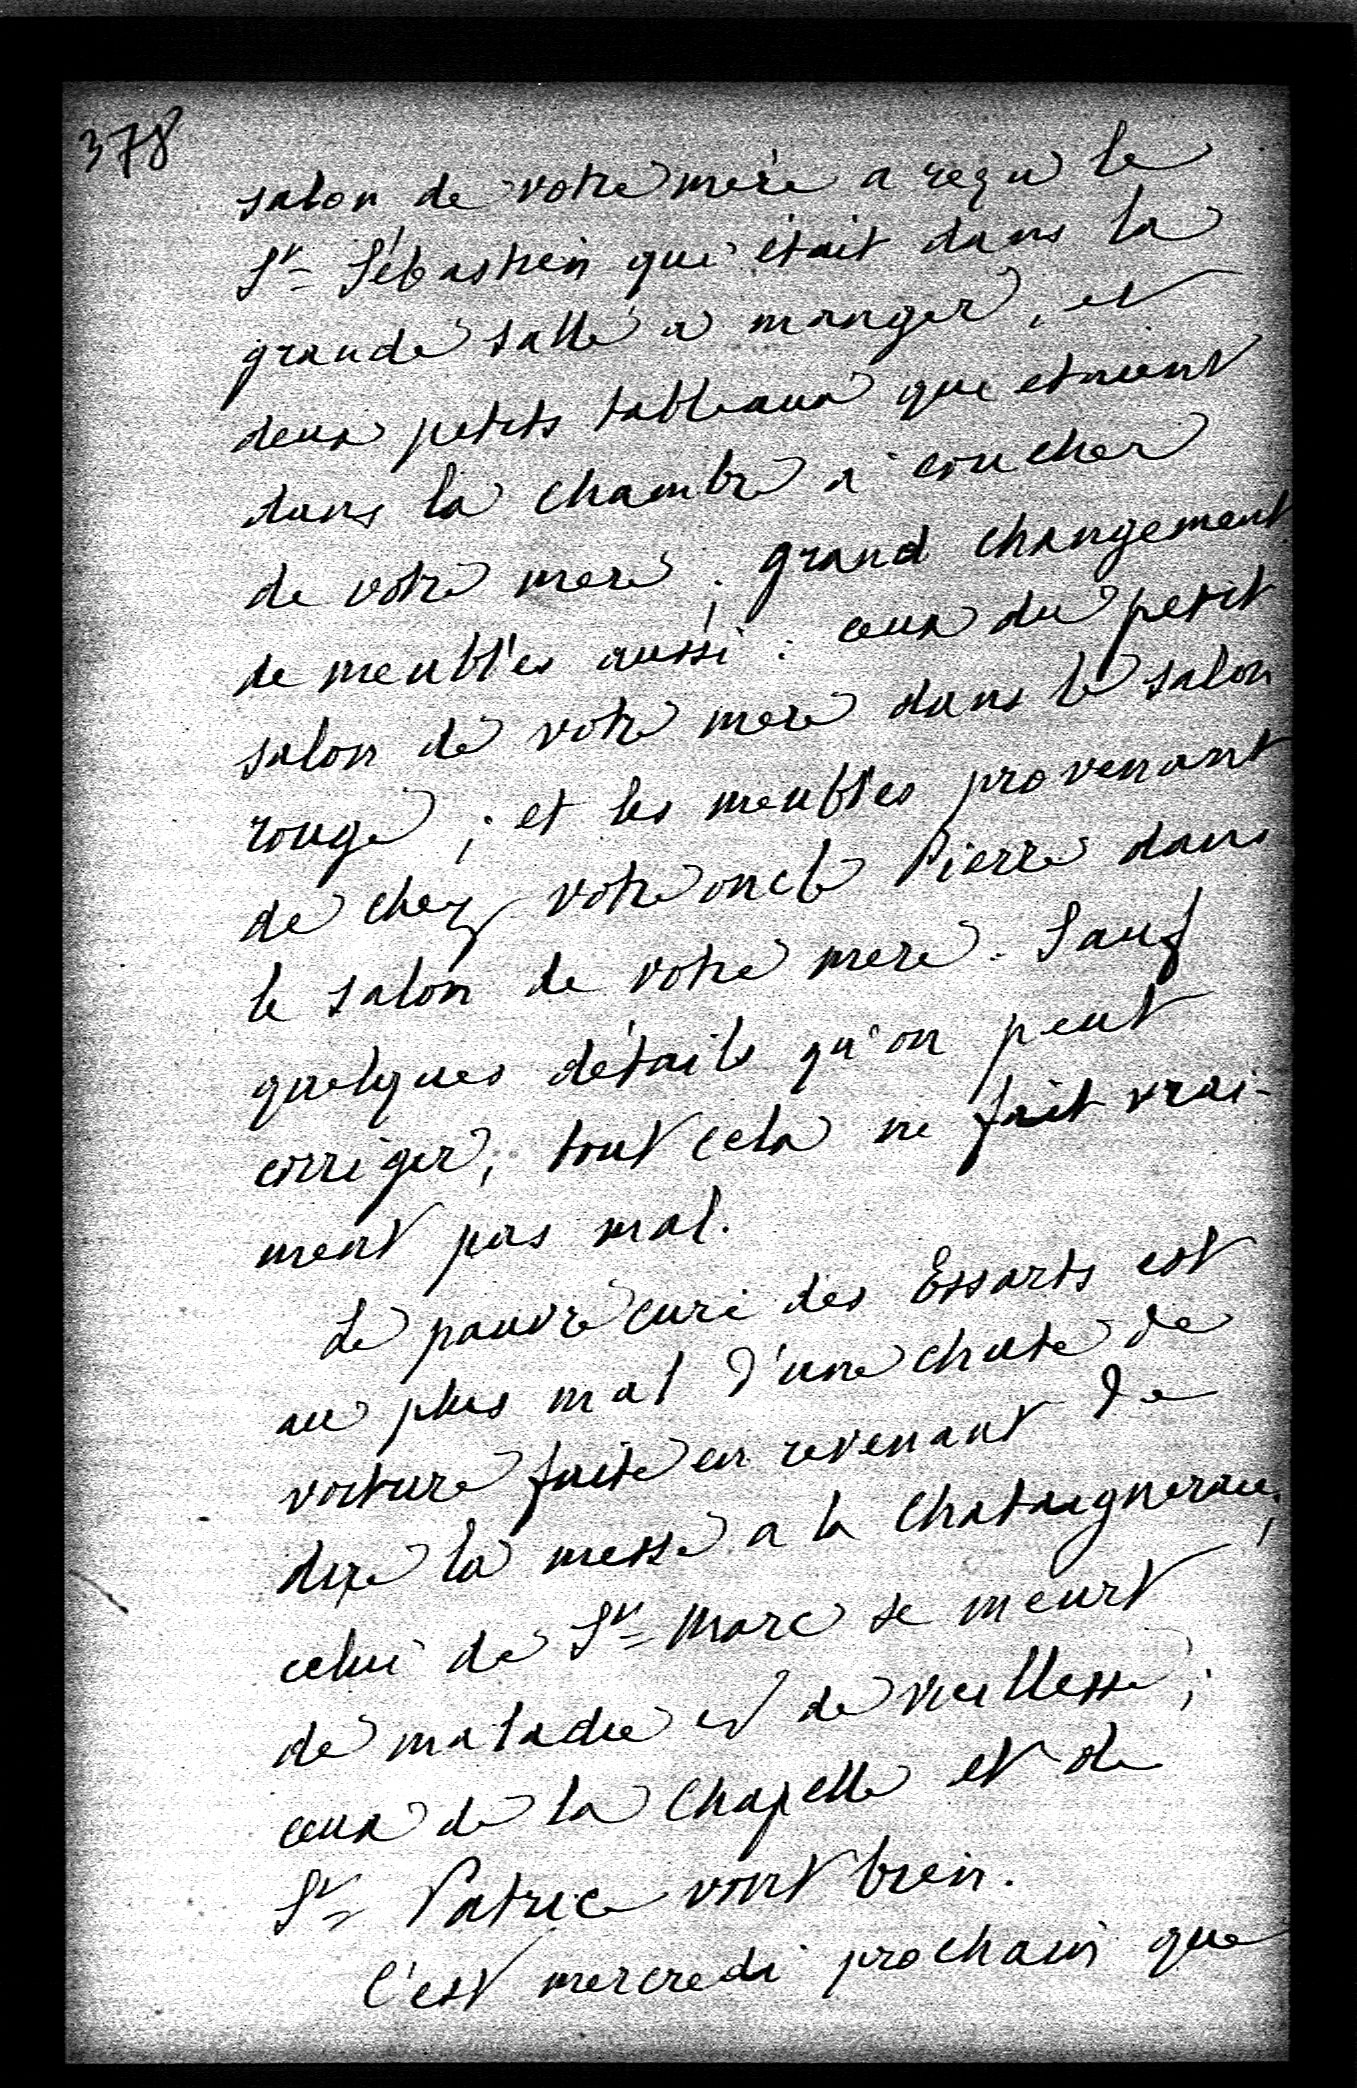 378
salon de votre mère a reçu le
St Sébastien qui était dans la
grande salle a manger, et
deux petits tableaux qui etaient
dans la chambre a coucher
de votre mere ; grand changement
de meubles aussi : ceux du petit
salon de votre mere dans le salon
rouge ; et les meubles provenant
de chez votre oncle Pierre dans
le salon de votre mere. Sauf
quelques détails qu'on peut
corriger, tout cela ne fait vrai-
ment pas mal.
Le pauvre curé des Essarts est
au plus mal d'une chute de
voiture faite en revenant de
dire la messe a la Chataigneraie ;
celui de St Marc se meurt
de maladie et de vieillesse ;
ceux de la Chapelle et de
St Patrice vont bien.
C'est mercredi prochain que